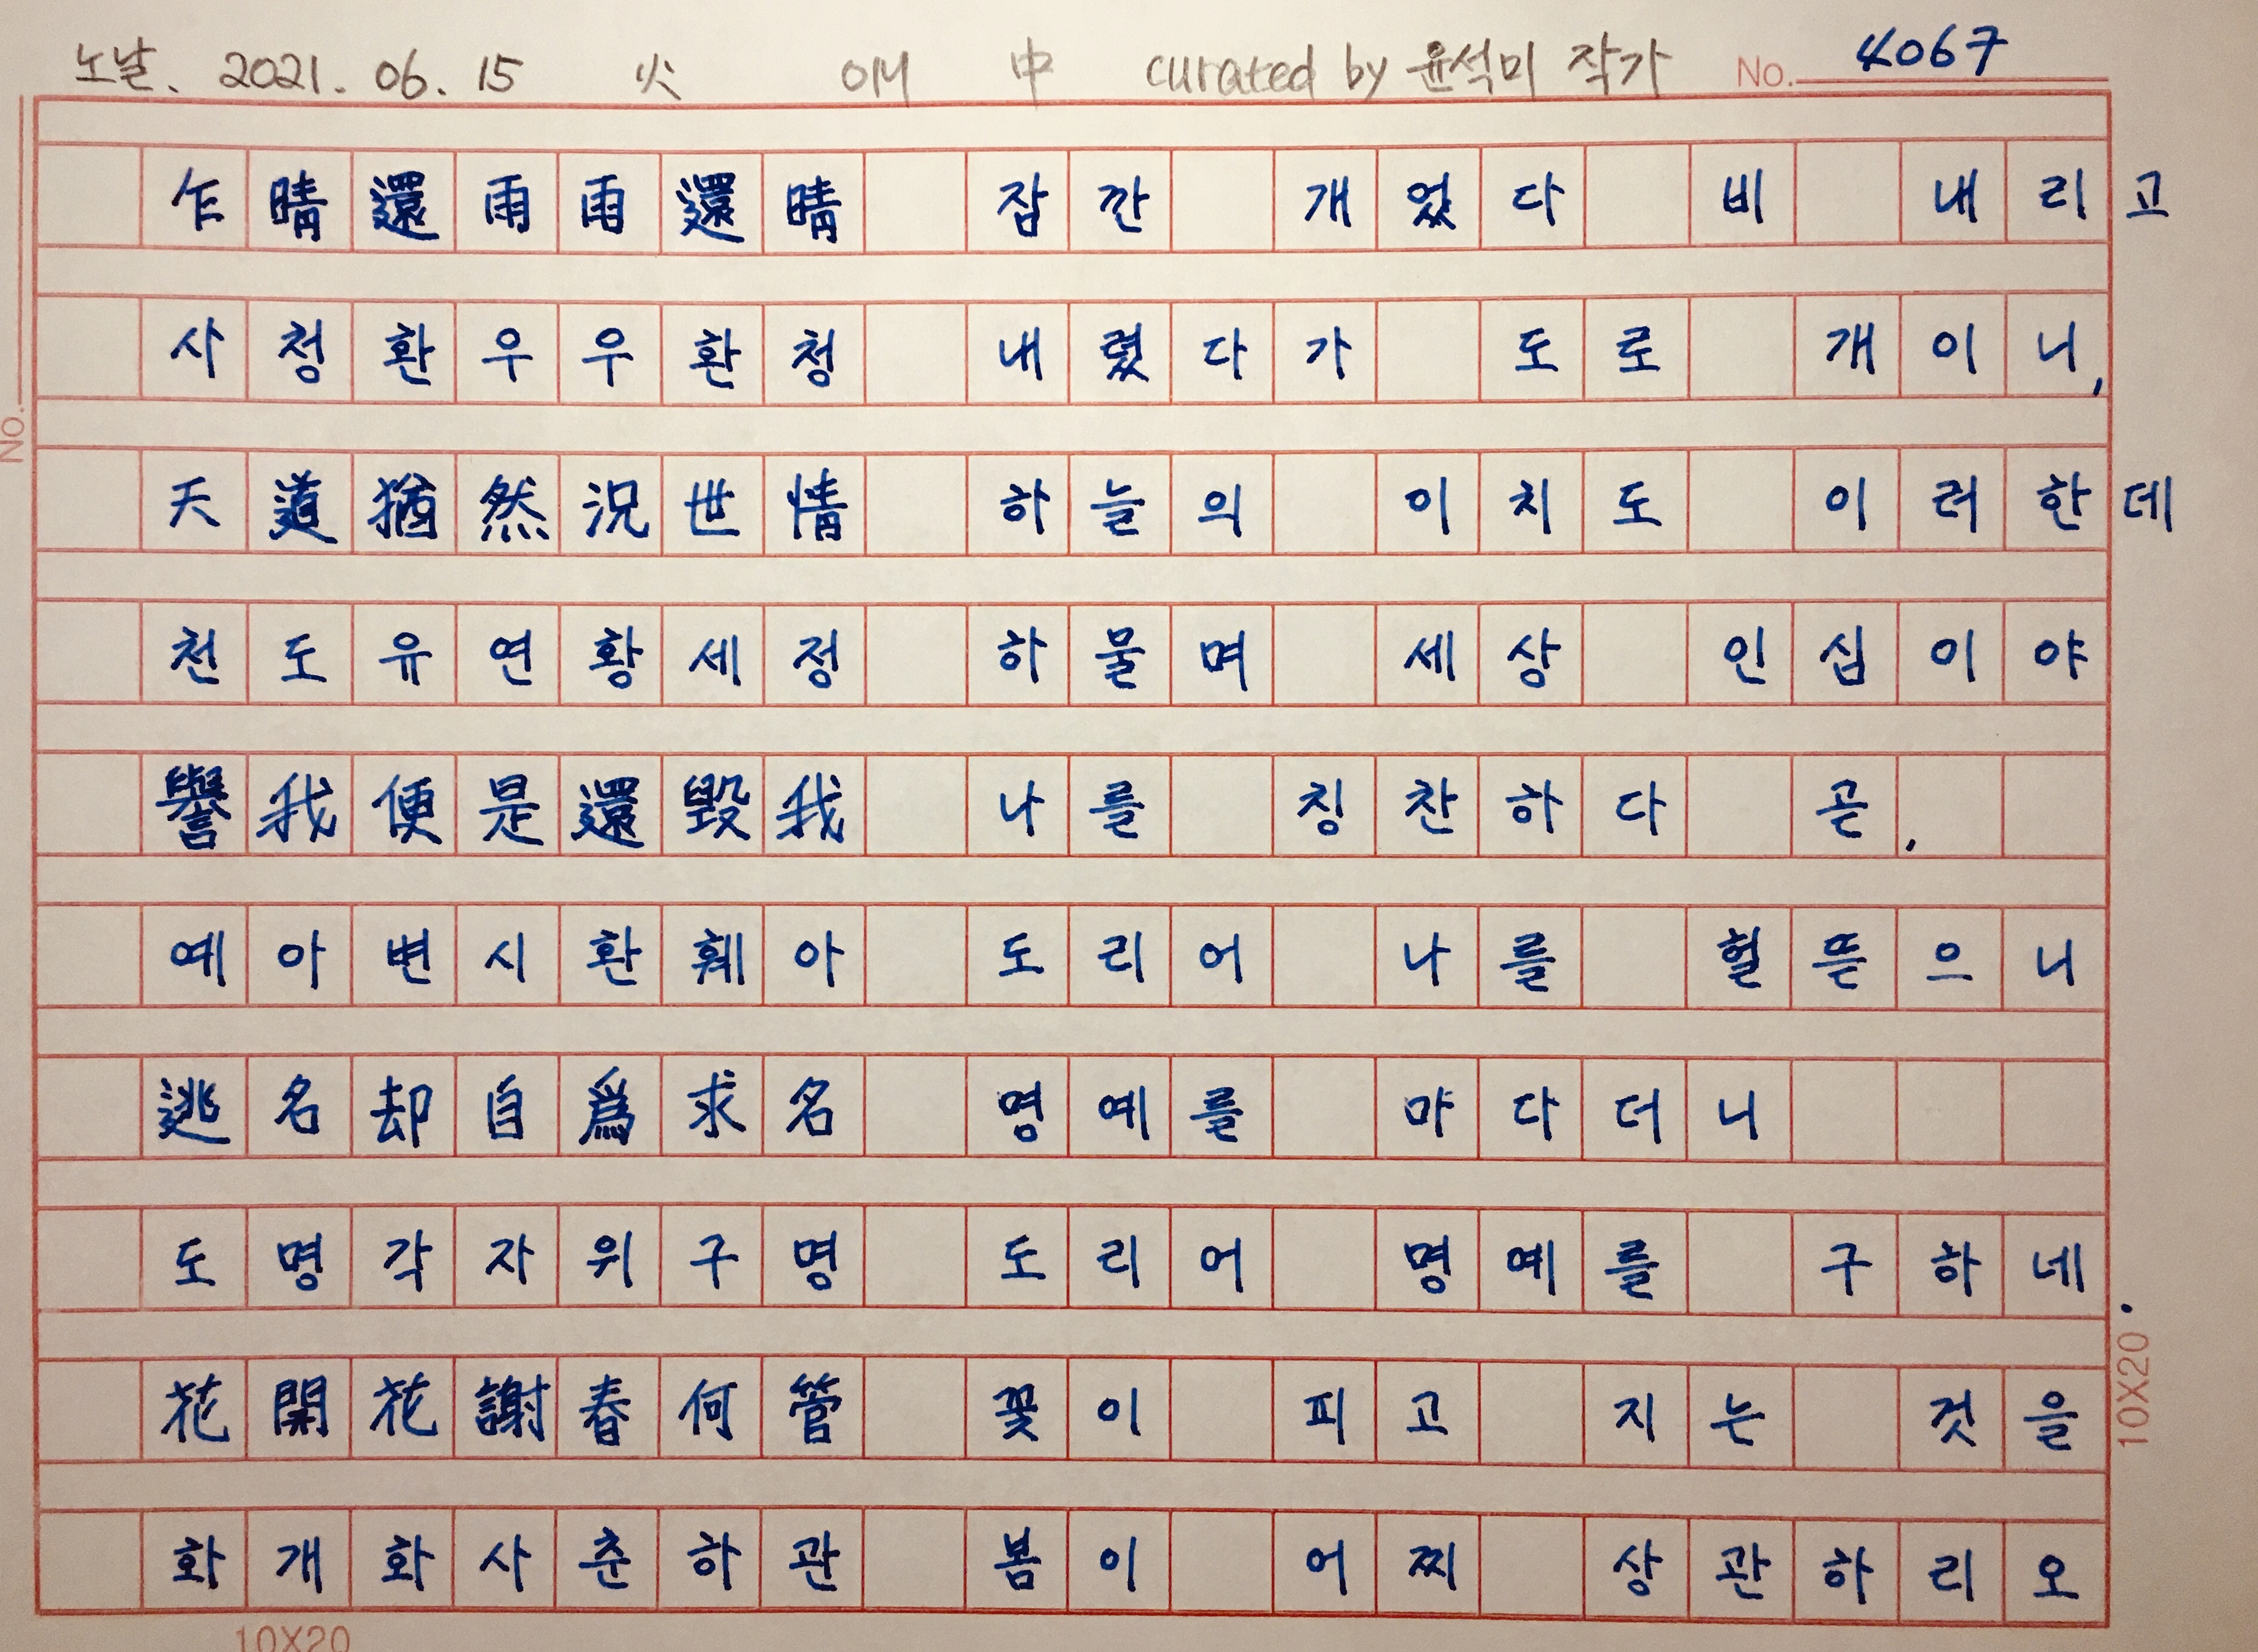 노날. 2021. 06. 15 火 OM 中 curated by 윤석미 작가 No. 4067
乍晴還雨雨還晴 잠깐 개었다 비 내리고
사청환우우환청 내렸다가 도로 개이니,
天道猶然況世情 하늘의 이치도 이러한데
천도유연황세정 하물며 세상 인심이야
譽我便是還毀我 나를 칭찬하다 곧,
예아변시환훼아 도리어 나를 헐뜯으니
逃名却自爲求名 명예를 마다더니
도명각자위구명 도리어 명예를 구하네.
花開花謝春何管 꽃이 피고 지는 것을
화개화사춘하관 봄이 어찌 상관하리오
No.
10X20
10X20